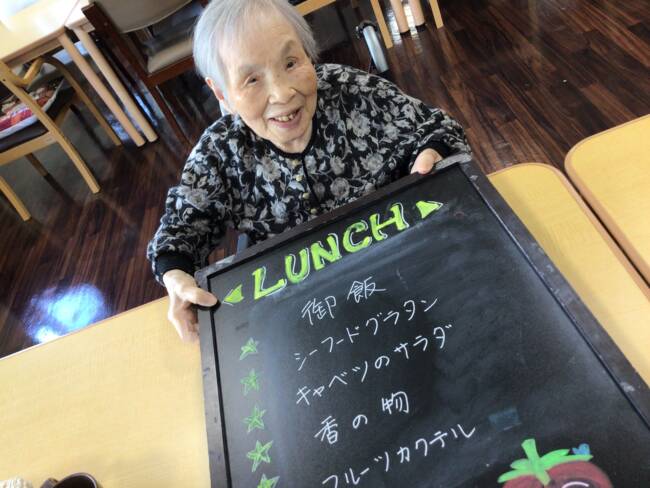 LUNCH
御飯
シーフードグラタン
キャベツのサラダ
香の物
フルーツカクテル